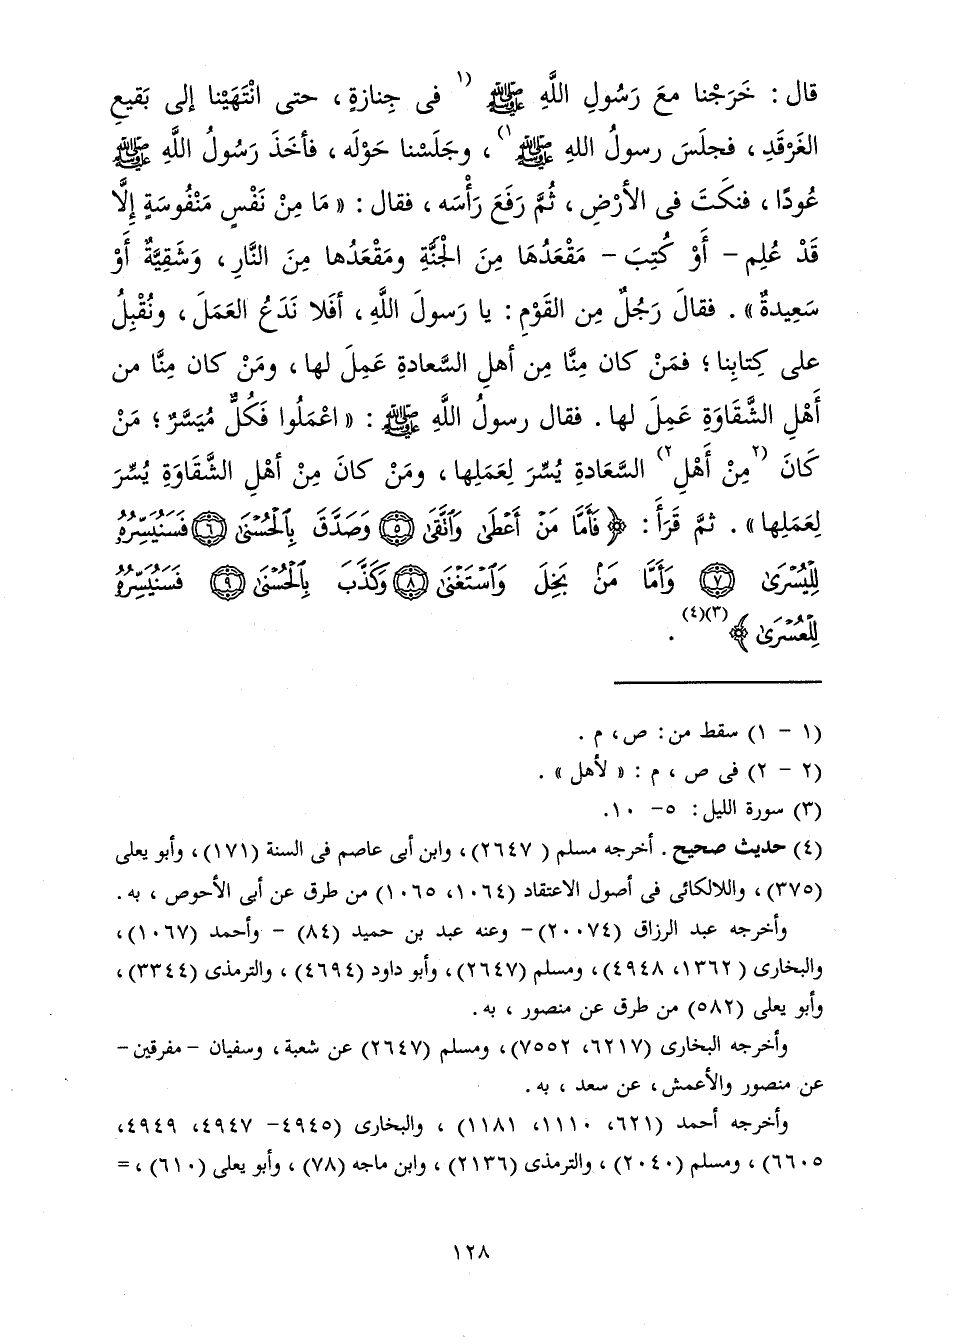 قال : خَرَجْنا معَ رَسُولِ اللَّهِ ﷺ (١ فى جِنازةٍ ، حتى انْتَهَيْنا إلى بَقيعِ
الغَرْقَدِ ، فجلَسَ رسولُ اللهِ ﷺ ١) ، وجَلَسْنا حَوْلَه ، فأخَذَ رَسُولُ اللَّهِ ﷺ
عُودًا ، فنكَتَ فى الأرْضِ ، ثُمَّ رَفَعَ رَأْسَه ، فقال : « مَا مِنْ نَفْسٍ مَنْفُوسَةٍ إِلَّا
قَدْ عُلِم – أَوْ كُتِبَ – مَقْعَدُهَا مِنَ الجَنَّةِ ومَقْعَدُها مِنَ النَّارِ ، وَشَقِيَّةٌ أَوْ
سَعِيدةٌ » . فقالَ رَجُلٌ مِن القَوْمِ : يا رَسولَ اللَّهِ ، أفَلا نَدَعُ العَمَلَ ، ونُقْبِلُ
على كِتابِنا ؛ فمَنْ كان مِنَّا مِن أهلِ السَّعادةِ عَمِلَ لها ، ومَنْ كان مِنَّا من
أَهْلِ الشَّقَاوَةِ عَمِلَ لها . فقال رسولُ اللَّهِ ﷺ : « اعْمَلُوا فَكُلٌّ مُيَسَّرٌ ؛ مَنْ
كَانَ (٢ مِنْ أَهْلِ ٢) السَّعَادةِ يُسِّرَ لِعَمَلِها ، ومَنْ كانَ مِنْ أهْلِ الشَّقَاوَةِ يُسِّرَ
لِعَمَلِها » . ثمَّ قَرَأَ : ﴿ فَأَمَّا مَنْ أَعْطَىٰ وَٱتَّقَىٰ ۝٥ وَصَدَّقَ بِٱلْحُسْنَىٰ ۝٦ فَسَنُيَسِّرُهُۥ
لِلْيُسْرَىٰ ۝٧ وَأَمَّا مَنۢ بَخِلَ وَٱسْتَغْنَىٰ ۝٨ وَكَذَّبَ بِٱلْحُسْنَىٰ ۝٩ فَسَنُيَسِّرُهُۥ
لِلْعُسْرَىٰ ﴾ (٣)(٤) .
(١ – ١) سقط من : ص ، م .
(٢ – ٢) فى ص ، م : « لأهل » .
(٣) سورة الليل : ٥– ١٠.
(٤) حديث صحيح . أخرجه مسلم ( ٢٦٤٧) ، وابن أبى عاصم فى السنة (١٧١) ، وأبو يعلى
(٣٧٥) ، واللالكائى فى أصول الاعتقاد (١٠٦٤، ١٠٦٥) من طرق عن أبى الأحوص ، به .
وأخرجه عبد الرزاق (٢٠٠٧٤) – وعنه عبد بن حميد (٨٤) – وأحمد (١٠٦٧) ،
والبخارى ( ١٣٦٢، ٤٩٤٨) ، ومسلم (٢٦٤٧) ، وأبو داود (٤٦٩٤) ، والترمذى (٣٣٤٤) ،
وأبو يعلى (٥٨٢) من طرق عن منصور ، به .
وأخرجه البخارى (٦٢١٧، ٧٥٥٢) ، ومسلم (٢٦٤٧) عن شعبة ، وسفيان – مفرقين –
عن منصور والأعمش ، عن سعد ، به .
وأخرجه أحمد (٦٢١، ١١١٠، ١١٨١) ، والبخارى (٤٩٤٥– ٤٩٤٧، ٤٩٤٩،
٦٦٠٥) ، ومسلم (٢٠٤٠) ، والترمذى (٢١٣٦) ، وابن ماجه (٧٨) ، وأبو يعلى (٦١٠) ، =
١٢٨